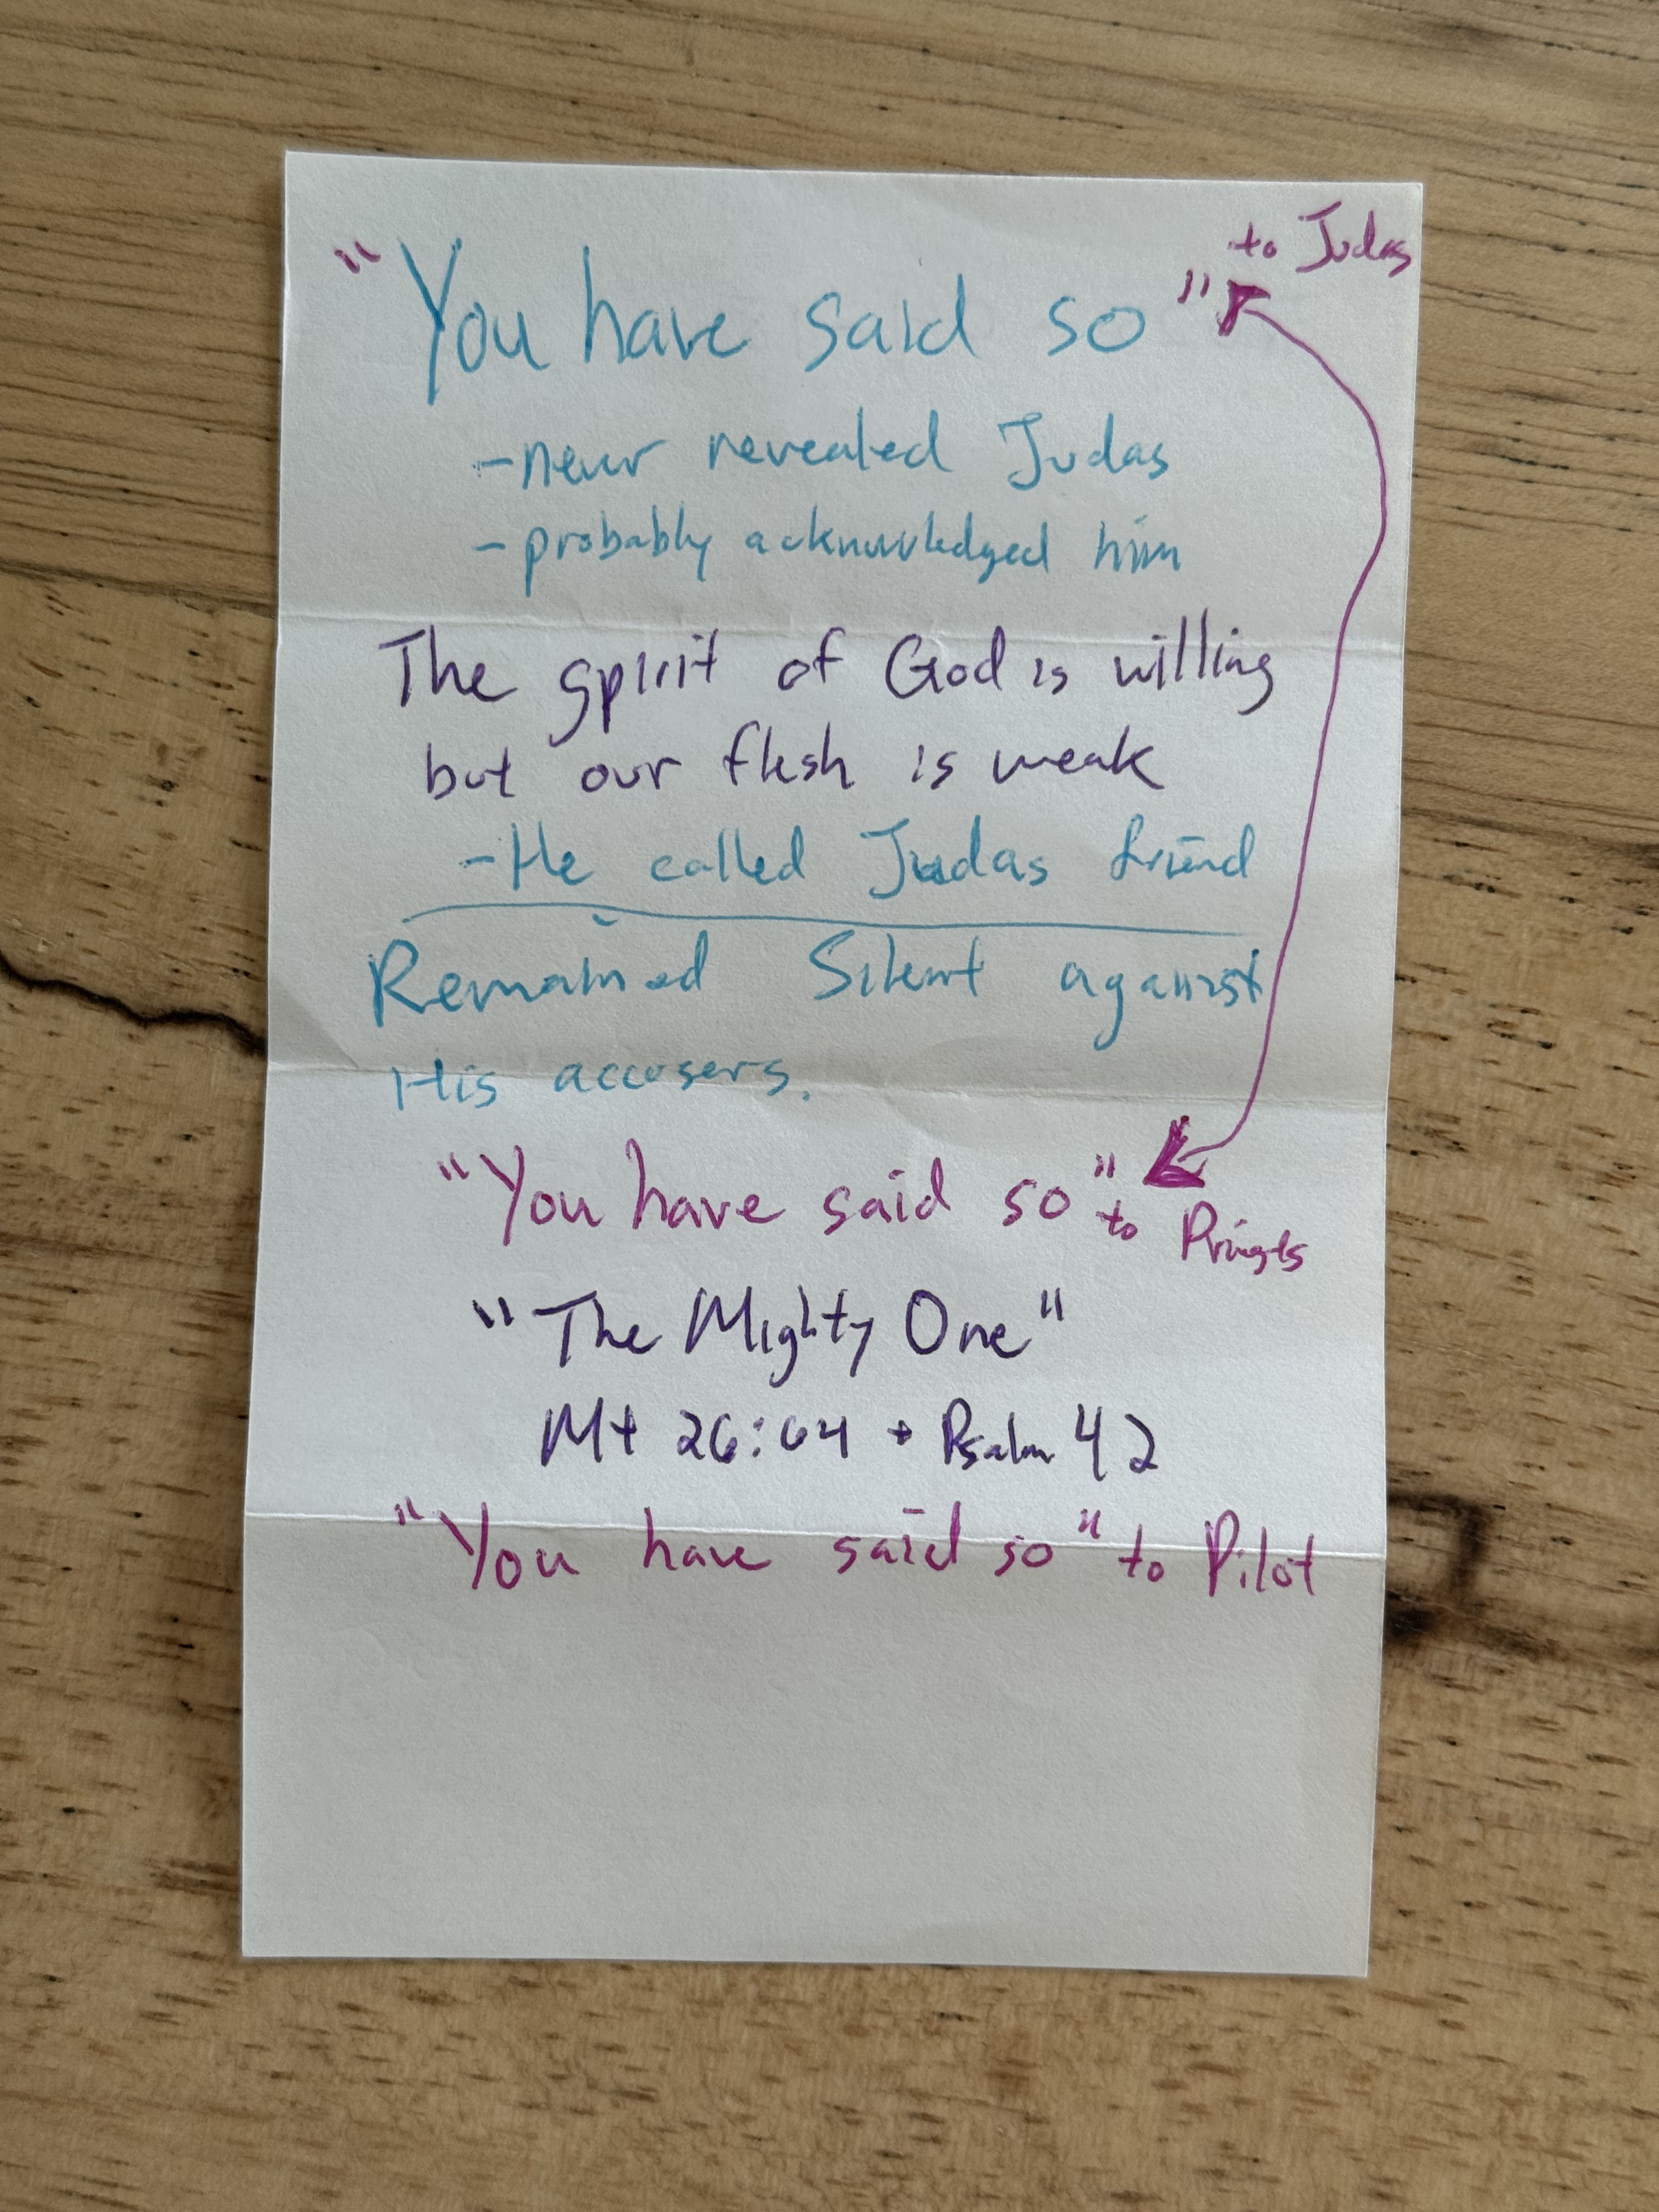 to Judas
"You have said so"
-never revealed Judas
-probably acknowledged him
The spirit of God is willing
but our flesh is weak
-He called Judas friend
Remained Silent against
His accusers.
"You have said so" to Priests
"The Mighty One"
Mt 26:64 + Psalm 42
"You have said so" to Pilot